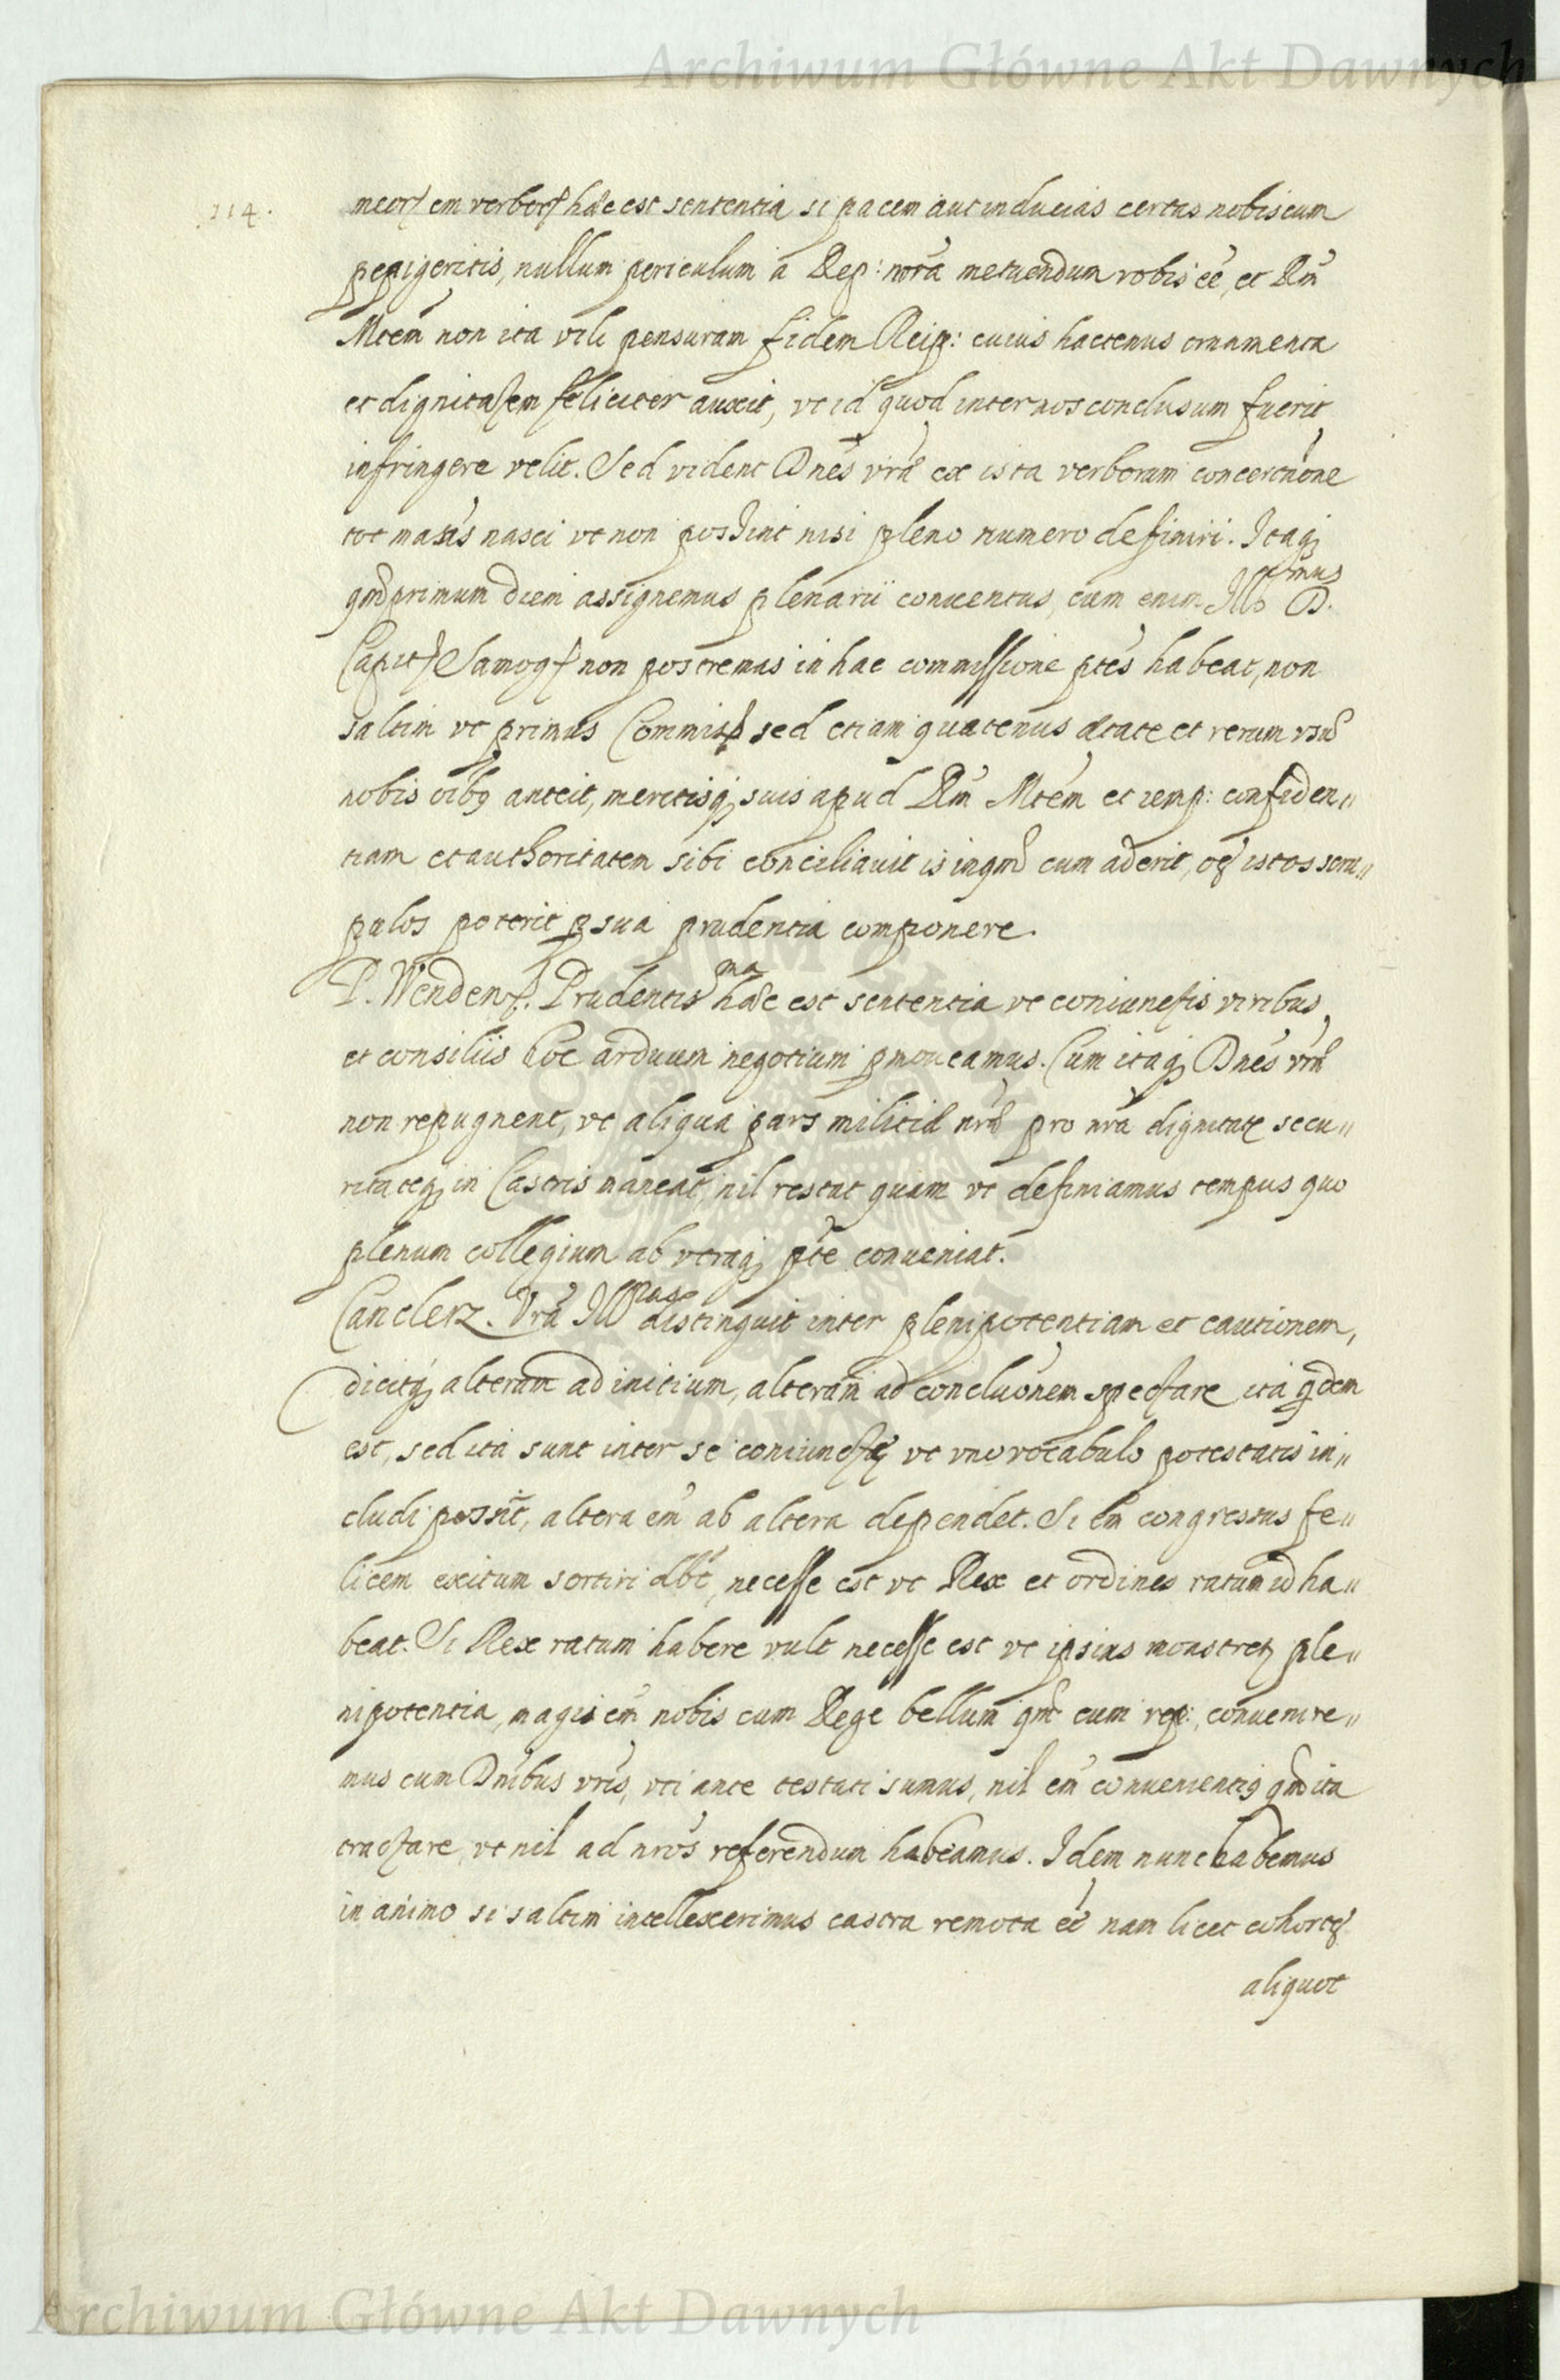 Archiwum Główne Akt Dawnych
114.
meorꝭ em̄ verborꝭ hæc est sententia si pacem aut inducias certas nobiscum
pepigeritis, nullum periculum a Rep: nr̃a metuendum vobis eẽ, et Rm̃
Mtẽm non ita vili pensuram fidem Reip: cuius hactenus ornamenta
et dignitatem feliciter auxit, vt id quod inter nos conclusum fuerit
infringere velit. Sed vident Dnẽs vrẽ ex ista verborum concertãone
tot nasci vt non possint nisi pleno numero definiri. Itaqꝫ
qm̃primum diem assignemus plenarii conuentus, cum enim Illmus D.
Capitꝭ Samogꝭ non postremas in hac commissione ptẽs habeat, non
saltim vt primus Commisꝭ sed etiam quatenus ætate et rerum vsu
nobis oĩbꝰ anteit, meritisqꝫ suis apud Rm̃ Mtẽm et remp: confiden„
tiam et authoritatem sibi conciliauit is inqm̃ cum aderit, oẽs istos scru„
pulos poterit ꝓ sua prudentia componere.
P. Wendenꝭ. Prudentisma hæc est sententia vt coniunctis viribus
et consiliis hoc arduum negotium ꝓmoueamus. Cum itaqꝫ Dnẽs vrẽ
non repugnent, vt aliqua pars militiæ nrẽ pro nrã dignitate secu„
ritateqꝫ in Castris maneat, nil restat quam vt definiamus tempus quo
plenum collegium ab vtraqꝫ ptẽ conueniat.
Canclerz. Vrã Illꝰ distinguit inter plenipotentiam et cautionem,
dicitqꝫ alteram ad initium, alteram ad conclũonem spectare ita qdem
est, sed ita sunt inter se coniunctæ vt vno vocabulo potestatis in„
cludi possĩt, altera em̃ ab altera dependet. Si em̃ congressus fe„
licem exitum sortiri dbẽt, necesse est vt Rex et ordines ratum id ha„
beat. Si Rex ratum habere vult necesse est vt ipsius monstretꝭ ple„
nipotentia, magis em̃ nobis cum Rege bellum qm̃ cum rep:, conuenire„
mus cum Dnĩbus vrĩs, vti ante testati sumus, nil em̃ conuenientiꝰ qm̃ ita
tractare, vt nil ad nrõs referendum habeamus. Idem nunc habemus
in animo si saltim intellexerimus castra remota eẽ nam licet cohortẽs
aliquot
Archiwum Główne Akt Dawnych